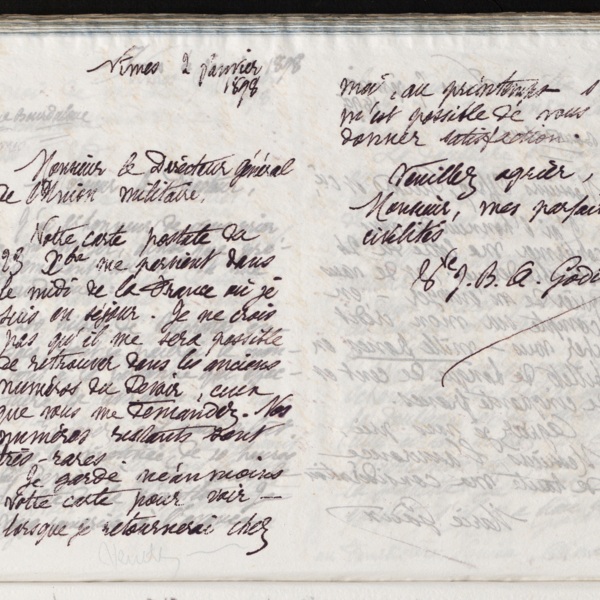 Nîmes 2 Janvier
1898
Monsieur le Directeur général
de l'Union militaire,
Votre carte postale du
23 Xbre me parvient dans
le midi de la France où je
suis en séjour. Je ne crois
pas qu'il me sera possible
de retrouver dans les anciens
numéros du Devoir, ceux
que vous me demandez. Nos
numéros restants sont
très-rares.
Je garde néanmoins
votre carte pour voir –
lorsque je retournerai chez
moi, au printemps s
m'est possible de vous
donner satisfaction.
Veuillez agréer,
Monsieur, mes parfai
civilités
Vve J. B. A. Godi
Marie Godin